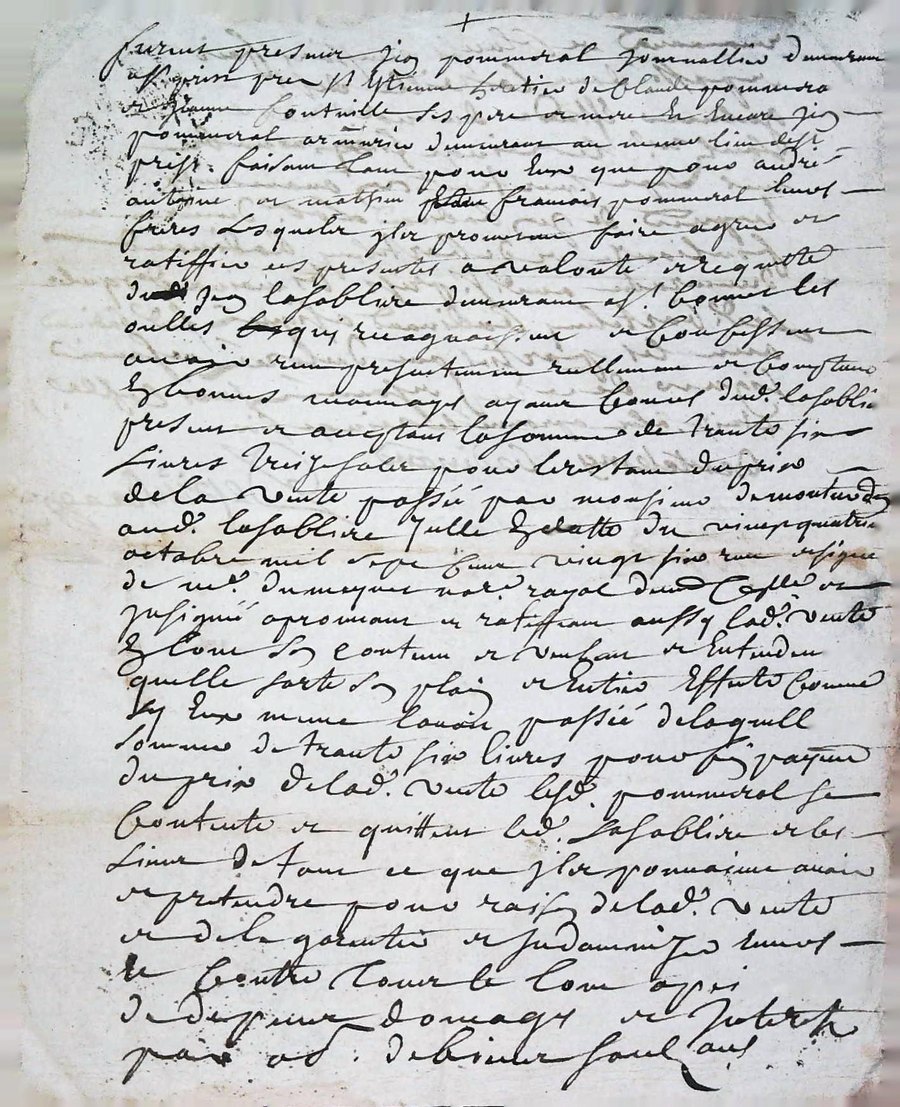 furent presens jean pommerol journallier demeurant
a St prist pres St Etienne heretier de Claude pommerol
et jeanne fontuille ses pere et mere et encore jean
pommerol armurier demeurant au meme lieu de St
prist faisant tant pour eux que pour andré
antoine et mathieu francois pommerol leurs
freres lesquels jls promettent faire agreer et
ratiffier ces presentes a volonté et requette
de jean lasabliere demeurant a St bonnet les
oulles qui recognoissent et confessent
avoir reçu presentement reellement et comptant
en bonnes monnoyes ayant cours dud. lasabliere
present et acceptant la somme de trante six
livres treize sols pour le restant du prix
de la vente passée par monsieur demontur
aud. lasabliere jcelle en datte du vingt quatre
octobre mil sept cent vingt six reçue et signée
de me. dumeynet nore. royal et
jnsigniée aprouvant et ratiffiant aussy lad. vente
en tout son contenu et veulent et entendent
quelle sorte son plain et entier effette comme
sy eux meme lavoit passée de laquelle
somme de trante six livres pour fin payement
du prix de lad. vente lesd. pommerol se
contente et quittent led. lasabliere et les
siens de tout ce que jls pourraient avoir
et pretendre pour raison de lad. vente
et de la garentir et jndamnizer envers
et contre tous le tout a peine
de depens domages et jnterests
par ob. de biens soub. ans